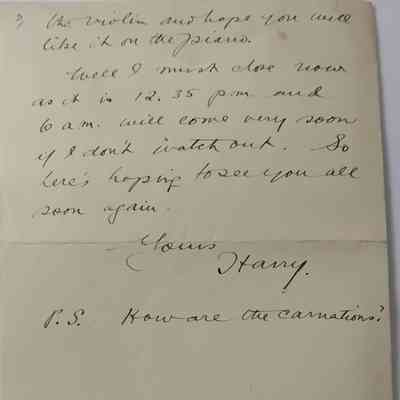 3) the violin and hope you will
like it on the piano.
Well I must close now
as it is 12.35 pm and
6 a.m. will come very soon
if I don't watch out. So
here's hoping to see you all
soon again.
Yours
Harry.
P.S. How are the carnations?